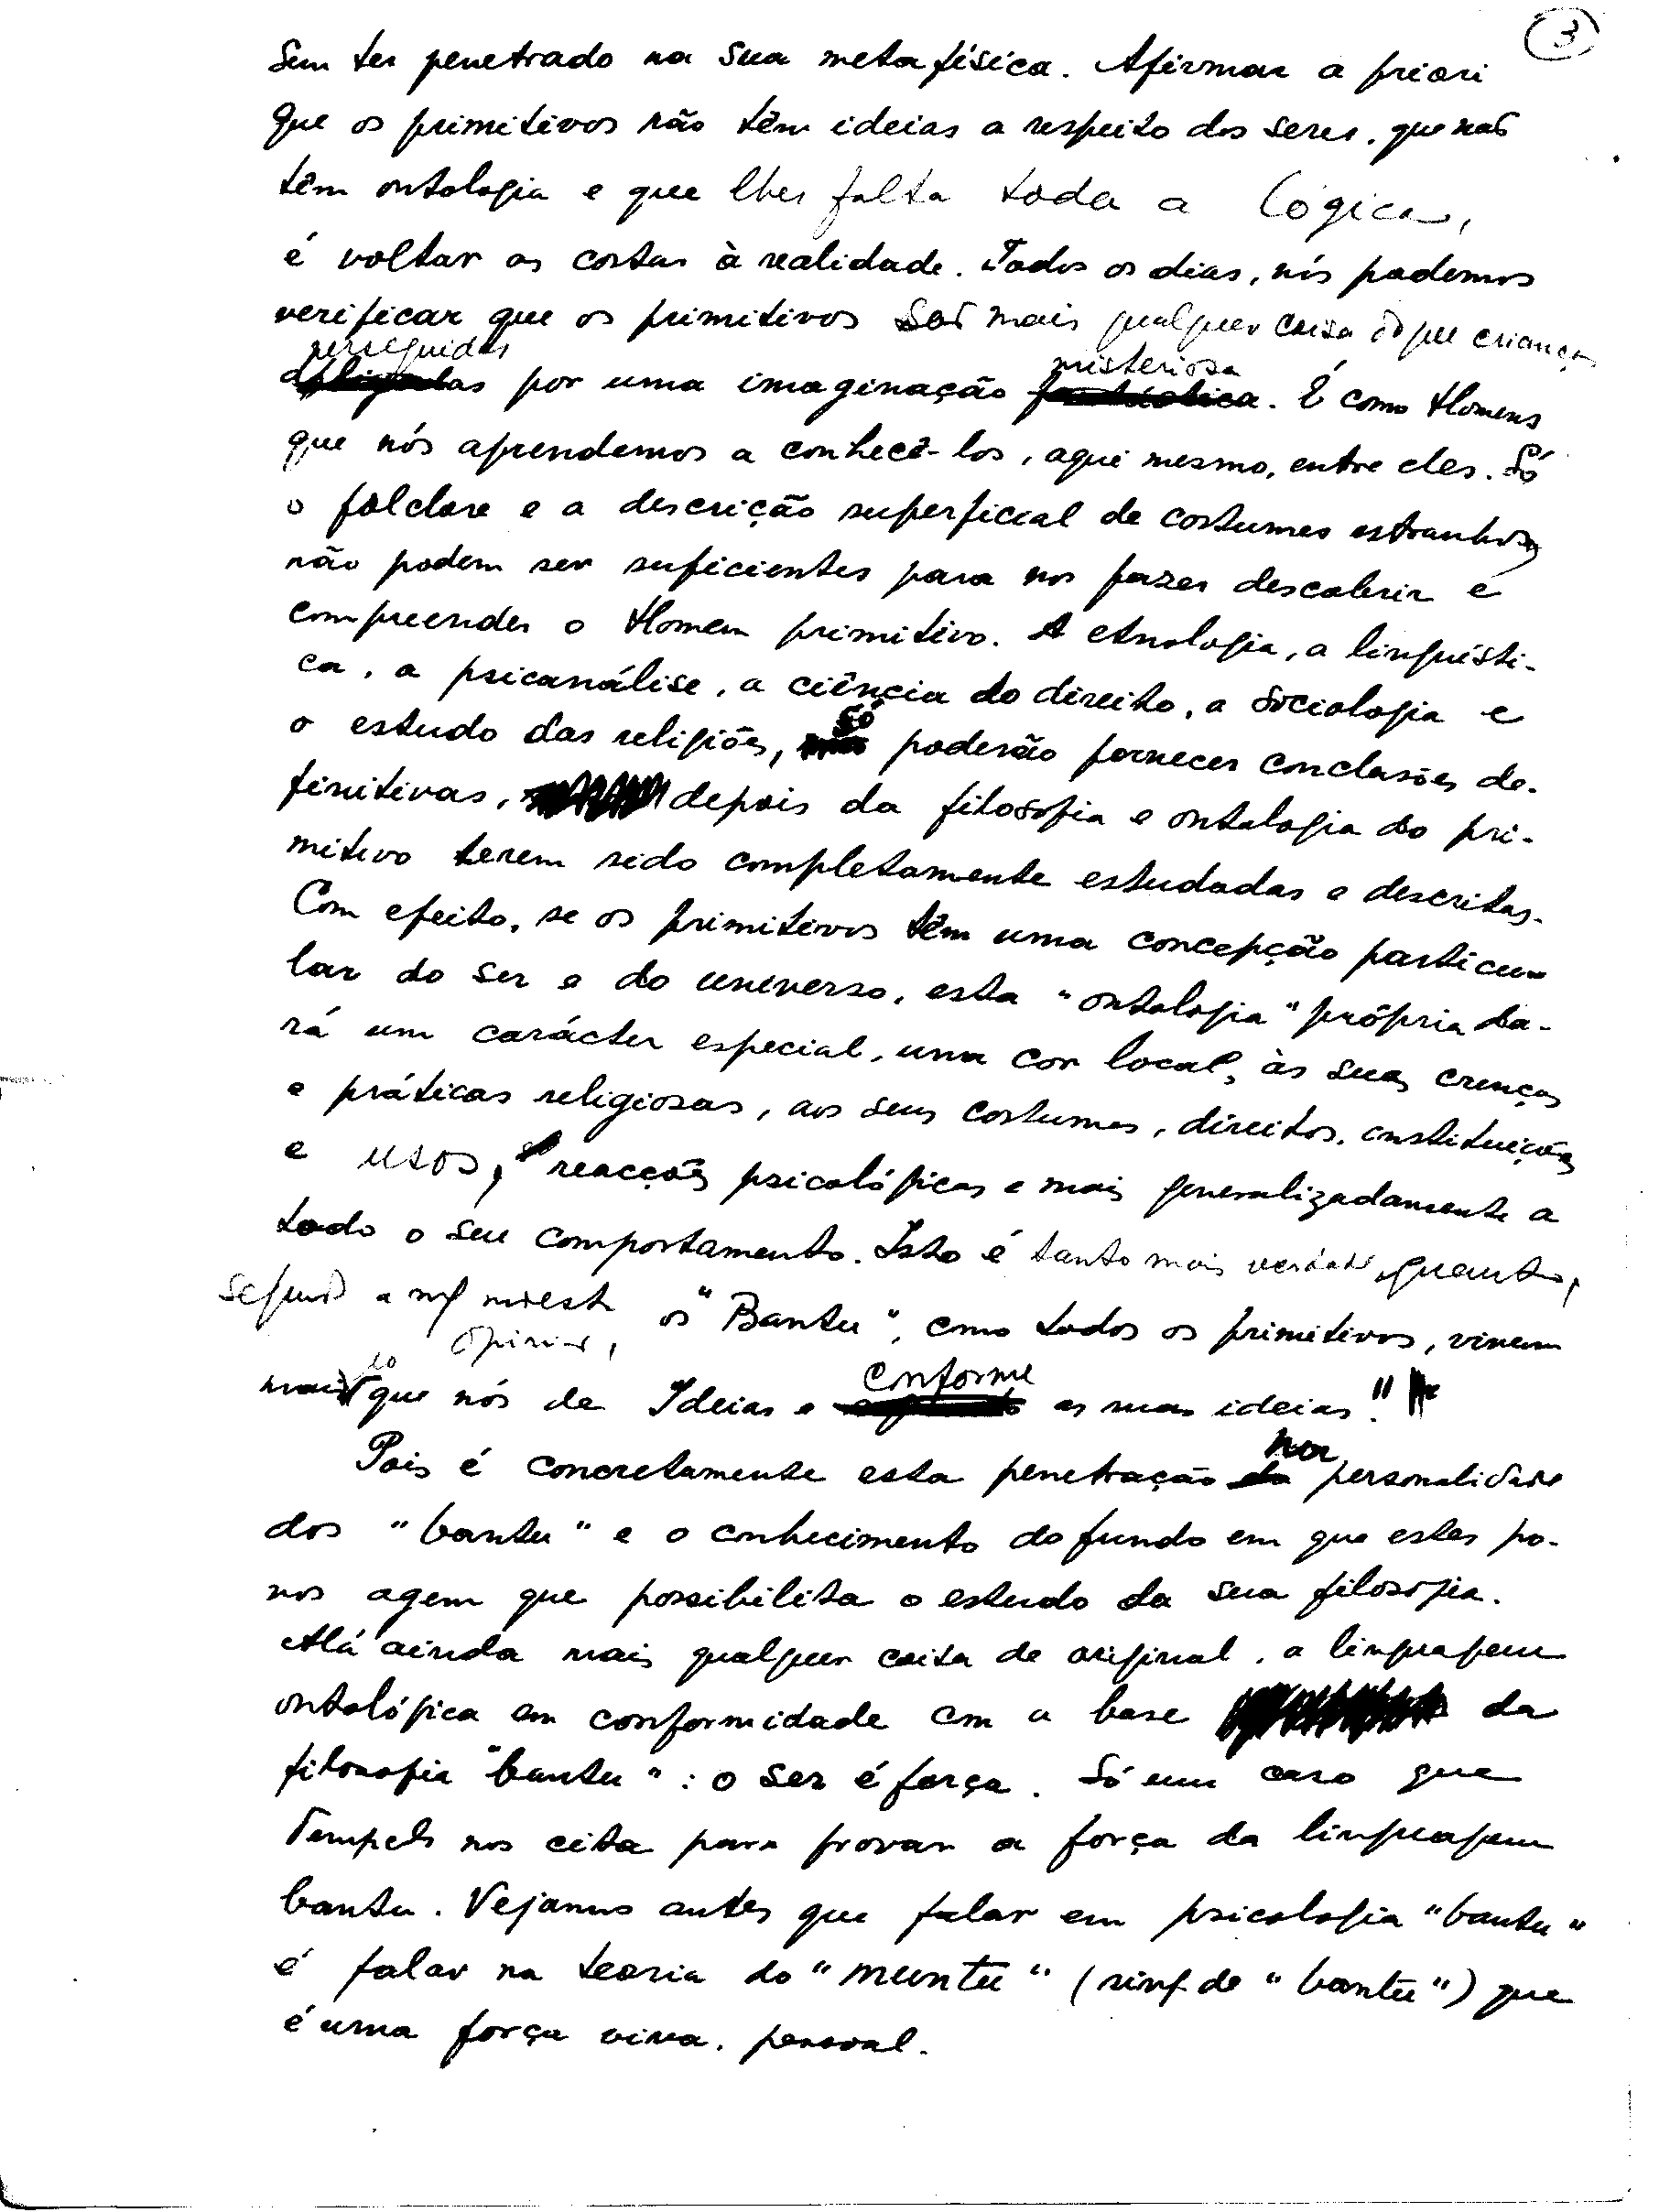 3
Sem ter penetrado na sua metafísica. Afirmar a priori
que os primitivos não têm ideias a respeito dos seres, que não
têm ontologia e que lhes falta toda a lógica,
é voltar as costas à realidade. Todos os dias, nós podemos
verificar que os primitivos são mais qualquer coisa do que crianças
perseguidas por uma imaginação misteriosa. É como Homens
que nós aprendemos a conhecê-los, aqui mesmo, entre eles. Só
o folclore e a descrição superficial de costumes estranhos
não podem ser suficientes para nos fazer descobrir e
compreender o Homem primitivo. A etnologia, a linguísti-
ca, a psicanálise, a ciência do direito, a sociologia e
o estudo das religiões, só poderão fornecer conclusões de-
finitivas, depois da filosofia e ontologia do pri-
mitivo terem sido completamente estudadas e descritas.
Com efeito, se os primitivos têm uma concepção particu-
lar do ser e do universo, esta "ontologia" própria da-
rá um carácter especial, uma cor local, às suas crenças
e práticas religiosas, aos seus costumes, direitos, instituições
e usos, reacções psicológicas e mais generalizadamente a
todo o seu comportamento. Isto é tanto mais verdade, quanto,
segundo a nossa
opinião, os "Bantu", como todos os primitivos, vivem
mais do que nós de Ideias e conforme as suas ideias."
Pois é concretamente esta penetração na personalidade
dos "bantu" e o conhecimento do fundo em que estes po-
vos agem que possibilita o estudo da sua filosofia.
Há ainda mais qualquer coisa de original, a linguagem
ontológica em conformidade com a base da
filosofia "bantu": o ser é força. Só um caso que
Tempels nos cita para provar a força da linguagem
bantu. Vejamos antes que falar em psicologia "bantu"
é falar na teoria do "muntu" (sing. de "bantu") que
é uma força viva, pessoal.